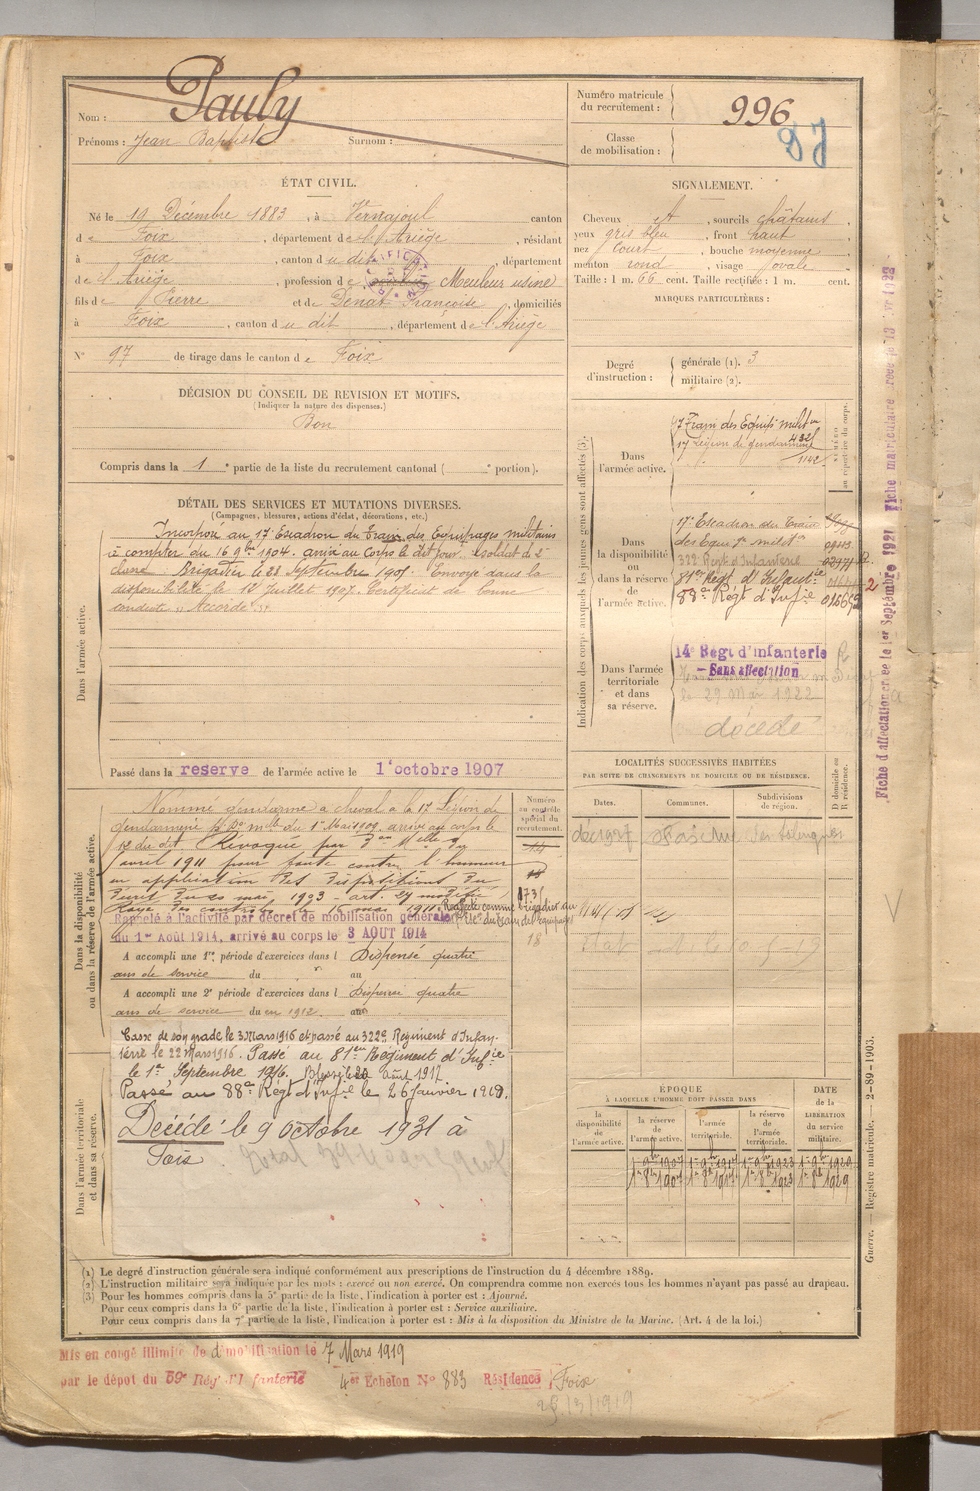 Nom : Pauly
Prénoms : Jean Baptiste Surnom :
Numéro matricule du recrutement : 996
Classe de mobilisation :
ÉTAT CIVIL.
Né le 19 Décembre 1883, à Vernajoul canton
de Foix, département de l'Ariège, résidant
à Foix, canton du dit, département
de l'Ariège, profession de Meuleur usine
fils de Pierre et de Denat Françoise, domiciliés
à Foix, canton du dit, département de l'Ariège
N° 97 de tirage dans le canton de Foix
SIGNALEMENT.
Cheveux et, sourcils châtains
yeux gris bleu, front haut,
nez court, bouche moyenne,
menton rond, visage ovale.
Taille : 1 m. 66 cent. Taille rectifiée : 1 m. cent.
MARQUES PARTICULIÈRES :
Degré d'instruction : générale (1). 3
militaire (2).
DÉCISION DU CONSEIL DE REVISION ET MOTIFS.
(Indiquer la nature des dispenses.)
Bon
Compris dans la 1e partie de la liste du recrutement cantonal ( e portion).
DÉTAIL DES SERVICES ET MUTATIONS DIVERSES.
(Campagnes, blessures, actions d'éclat, décorations, etc.)
Dans l'armée active.
Incorporé au 17e Escadron du Train des Equipages militaires
à compter du 16 9bre 1904. arrivé au Corps le dit jour. soldat de 2e
classe. Brigadier le 23 Septembre 1905. Envoyé dans la
disponibilité le 12 Juillet 1907. Certificat de bonne
conduite "Accordé".
Passé dans la reserve de l'armée active le 1er octobre 1907
Indication des corps auxquels les jeunes gens sont affectés (3).
NUMÉRO au répertoire du corps.
Dans l'armée active.
17e Train des Equips milit es
17e Légion de gendarmerie
1142
Dans la disponibilité ou dans la réserve de l'armée active.
17e Escadron du Train
des Equip. milit es
322 Regt d'Infanterie
81e Régt d'Infanterie
88e Régt d'Infie
Dans l'armée territoriale et dans sa réserve.
14e Régt d'infanterie
- Sans affectation
le 29 Mai 1922
décédé
LOCALITÉS SUCCESSIVES HABITÉES
PAR SUITE DE CHANGEMENTS DE DOMICILE OU DE RÉSIDENCE.
Dates. Communes. Subdivisions de région. D domicile ou R résidence.
Dans la disponibilité ou dans la réserve de l'armée active.
Numéro au contrôle spécial du recrutement.
Nommé gendarme à cheval à la 17e Légion de
gendarmerie du 1er Mai 1909. arrivé au corps le
13 du dit. Révoqué par Don Mlle du
1 avril 1911 pour faute contre l'honneur
en application des dispositions du
décret du 20 mai 1903 - art. 27 modifié
Rayé des contrôles le 15 mai 1911.
Rappelé à l'activité par décret de mobilisation générale
du 1er Août 1914, arrivé au corps le 3 AOUT 1914
A accompli une 1re période d'exercices dans l Dispensé quatre
ans de service du au
A accompli une 2e période d'exercices dans l Dispensé quatre
ans de service du en 1912 au
Cassé de son grade le 3 Mars 1916 et passé au 322e Régiment d'Infanterie
le 22 Mars 1916. Passé au 81e Régiment d'Infie
le 1er Septembre 1916. Blessé le 20 août 1917
Passé au 88e Régt d'Infie le 26 Janvier 1918.
Décédé le 9 octobre 1931 à
Foix
Dans l'armée territoriale et dans sa réserve.
ÉPOQUE
À LAQUELLE L'HOMME DOIT PASSER DANS
la disponibilité de l'armée active. la réserve de l'armée active. l'armée territoriale. la réserve de l'armée territoriale. DATE de la LIBÉRATION du service militaire.
1er 9bre 1907 1er 9bre 1917 1er 9bre 1923 1er 9bre 1929
1er 8bre 1907 1er 8bre 1917 1er 8bre 1923 1er 8bre 1929
(1) Le degré d'instruction générale sera indiqué conformément aux prescriptions de l'instruction du 4 décembre 1889.
(2) L'instruction militaire sera indiquée par les mots : exercé ou non exercé. On comprendra comme non exercés tous les hommes n'ayant pas passé au drapeau.
(3) Pour les hommes compris dans la 5e partie de la liste, l'indication à porter est : Ajourné.
Pour ceux compris dans la 6e partie de la liste, l'indication à porter est : Service auxiliaire.
Pour ceux compris dans la 7e partie de la liste, l'indication à porter est : Mis à la disposition du Ministre de la Marine. (Art. 4 de la loi.)
Mis en congé illimité de démobilisation le 7 Mars 1919
par le dépot du 59e Rég' d'Infanterie 4er Echelon N° 883 Résidence Foix
28/3/1919
Guerre. — Registre matricule. — 2-89-1903.
Fiche d'affectation créée le 1er Septembre 1921